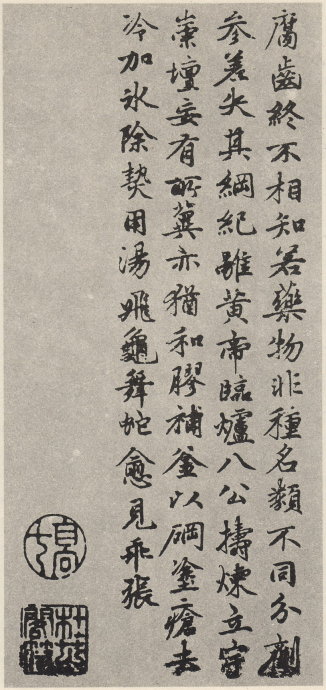 腐齒終不相知若藥物非種名類不同分劑
參差失其綱紀雖黃帝臨爐八公擣煉立宮
崇壇妄有所冀亦猶和膠補釜以硇塗瘡去
冷加氷除熱用湯飛龜舞蛇愈見乖張